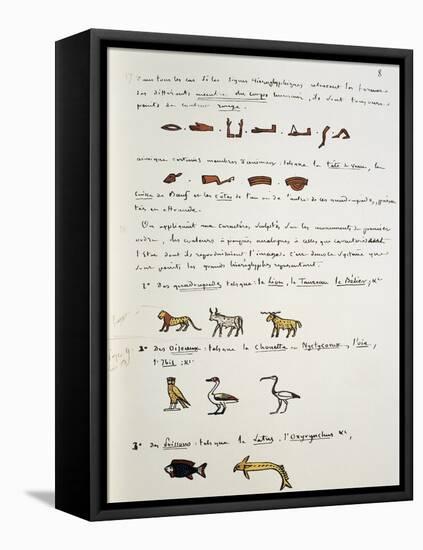 8
Dans tous les cas où les signes hiéroglyphiques retracent les formes
des différents membres du corps humain, ils sont toujours
peints de couleur rouge.
ainsi que certains membres d'animaux: telsque la tête de veau, la
Cuisse de Bœuf et les Côtes de l'un ou de l'autre de ces quadrupèdes,
en offrande.
On appliquait aux caractères sculptés sur les monuments du premier
ordre, des couleurs à peu près analogues à celles que
l'Etat dont ils reproduisaient l'image. C'est dans le système que
sont peints les grands hiéroglyphes représentant:
1° Des quadrupèdes telsque: le Lion, le Taureau, le Bélier, &c
2° Des Oiseaux: telsque la Chouette ou Nycticorax, l'oie,
l'Ibis; &c.
3° des Poissons: telsque le Latus, l'Oxyrynchus &c,